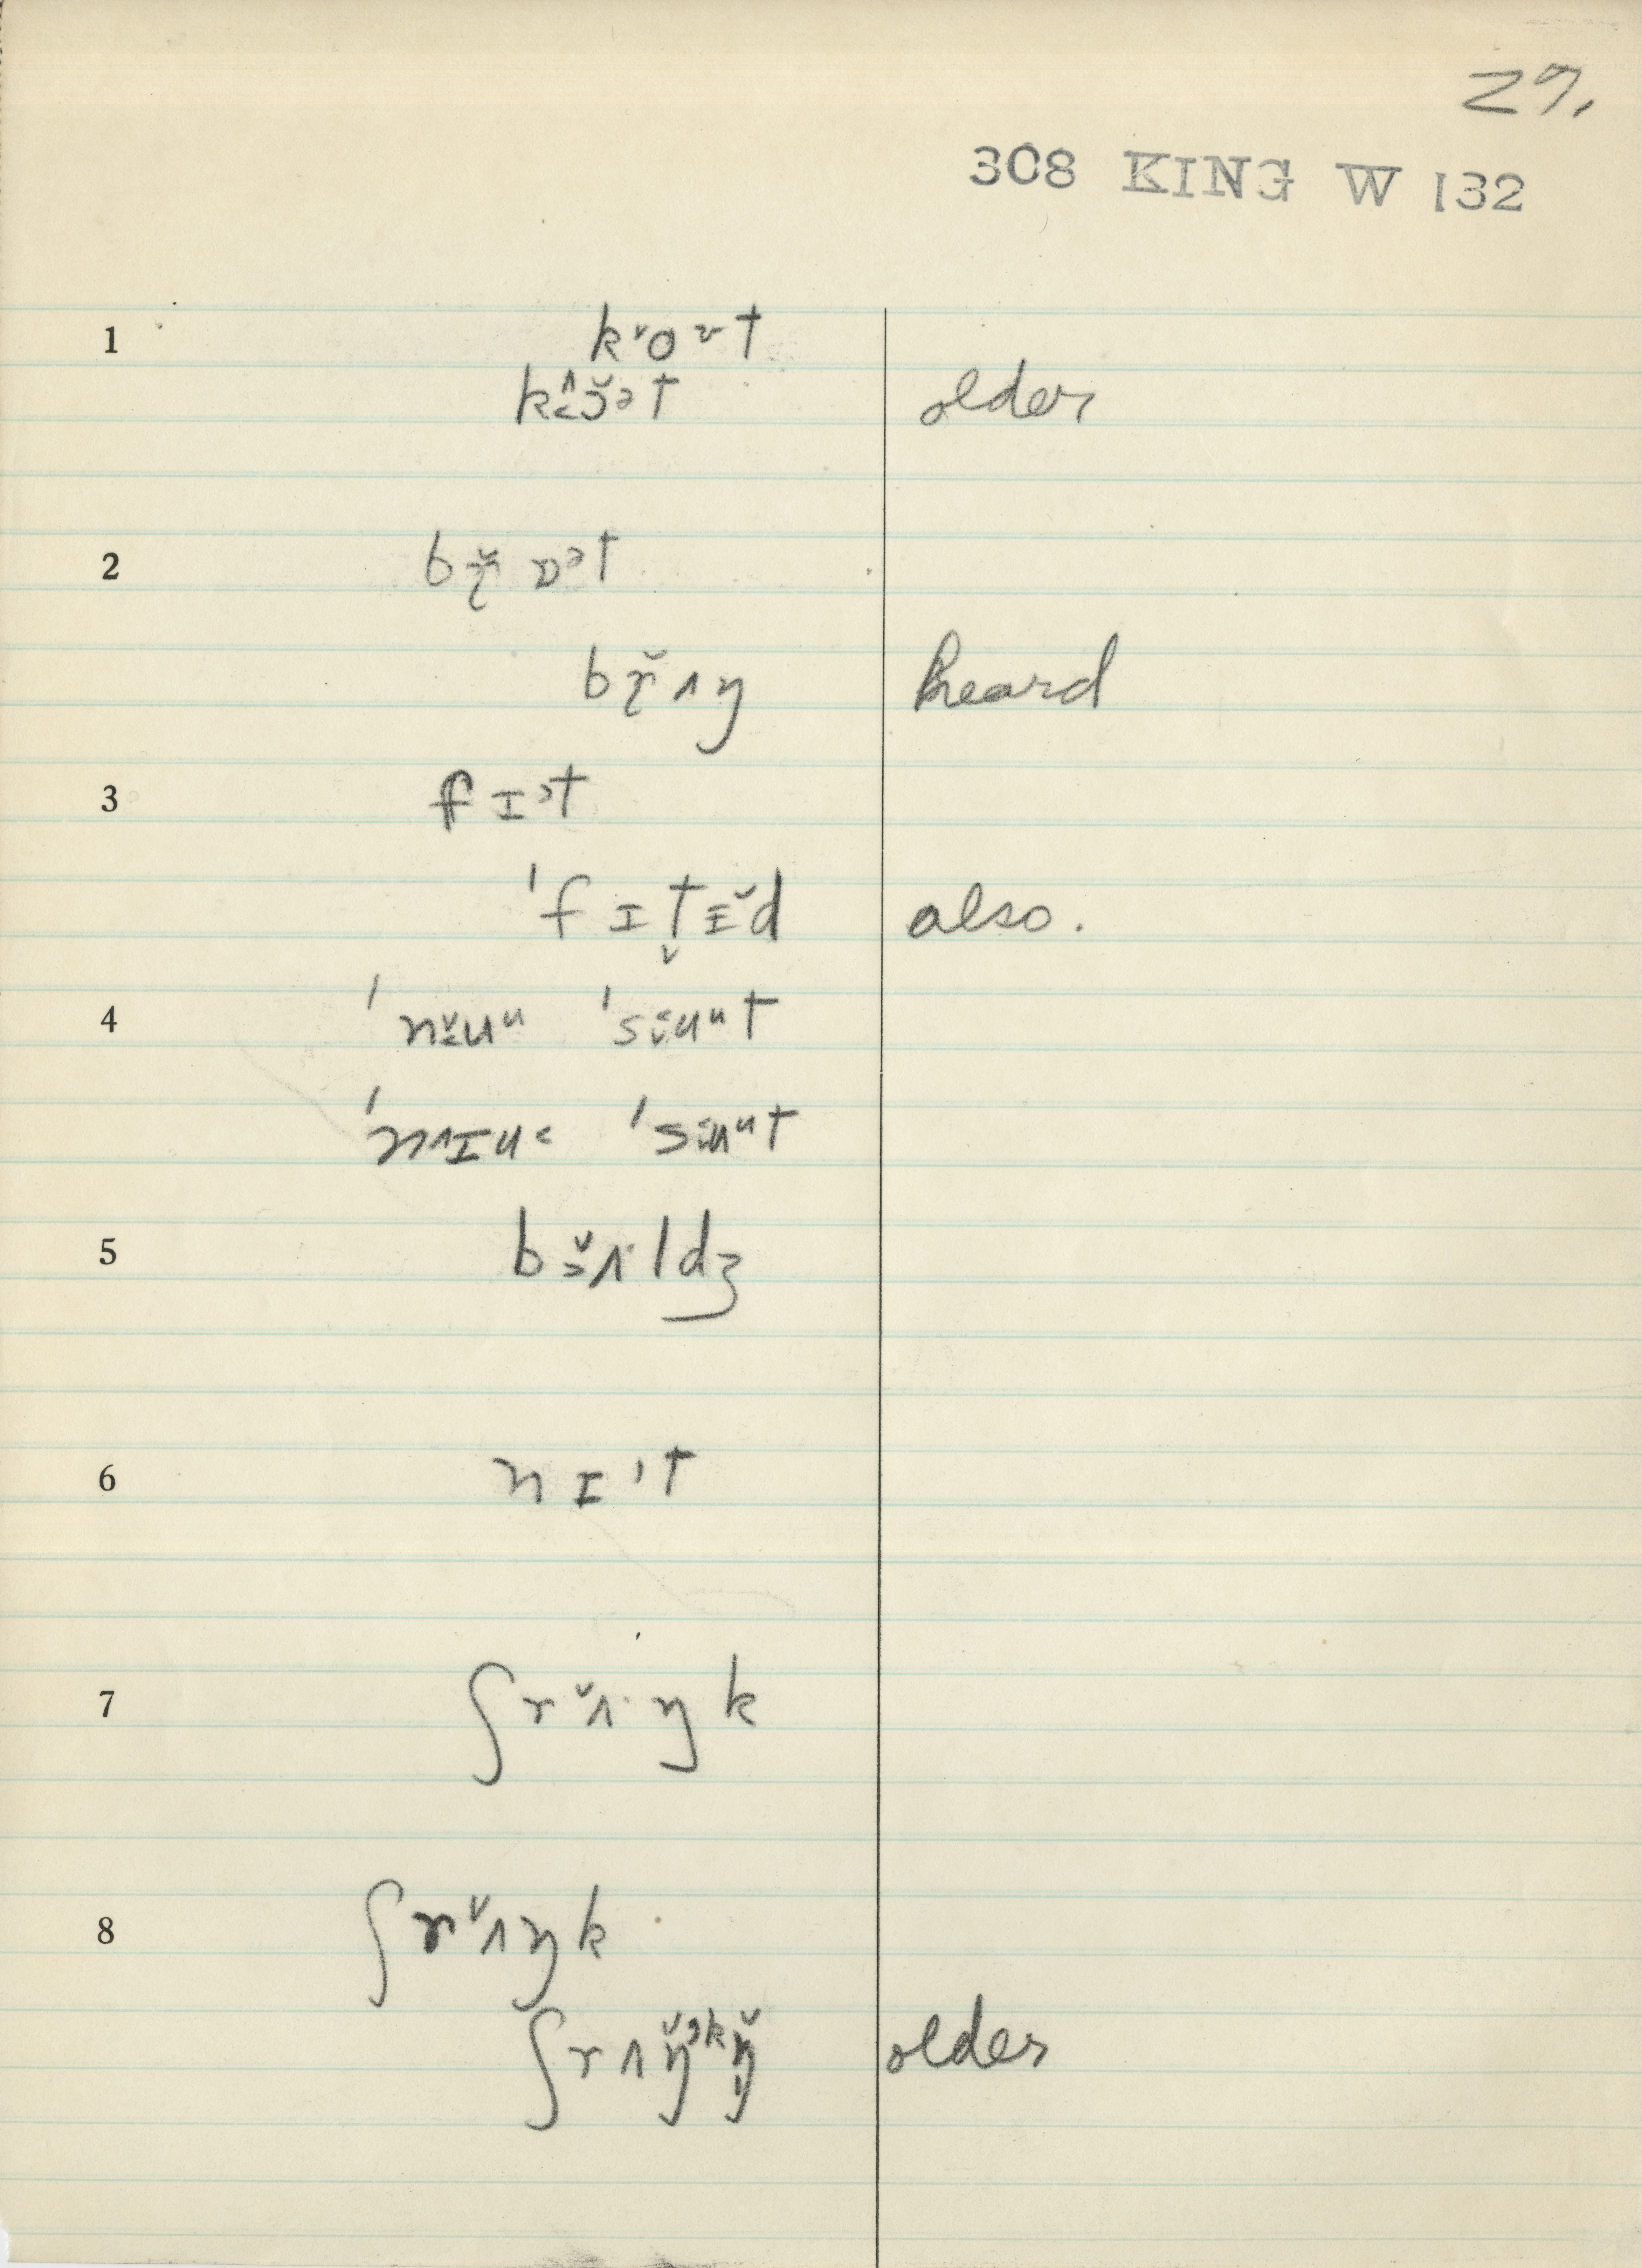 27.
308 KING W 132
1 k˅o ˞ t
k<^ɔ̆ᵊt older
2 bɽ̆ ɒᵊt
bɽ̆ ʌŋ heard
3 f ɪᵊt
ˈf ɪ t̬ ɪ̆d also.
4 ˈnɪ̆uᵘ ˈsiuᵘt
ˈnʌɪu< ˈsiuᵘt
5 bɜ̆ʌ·ldʒ
6 n ɪ ᵊt
7 ʃr ˅ʌ· ŋ k
8 ʃr˅ʌŋk
ʃr ʌ ŋ̆ᵊᵏŋ̩̆ older